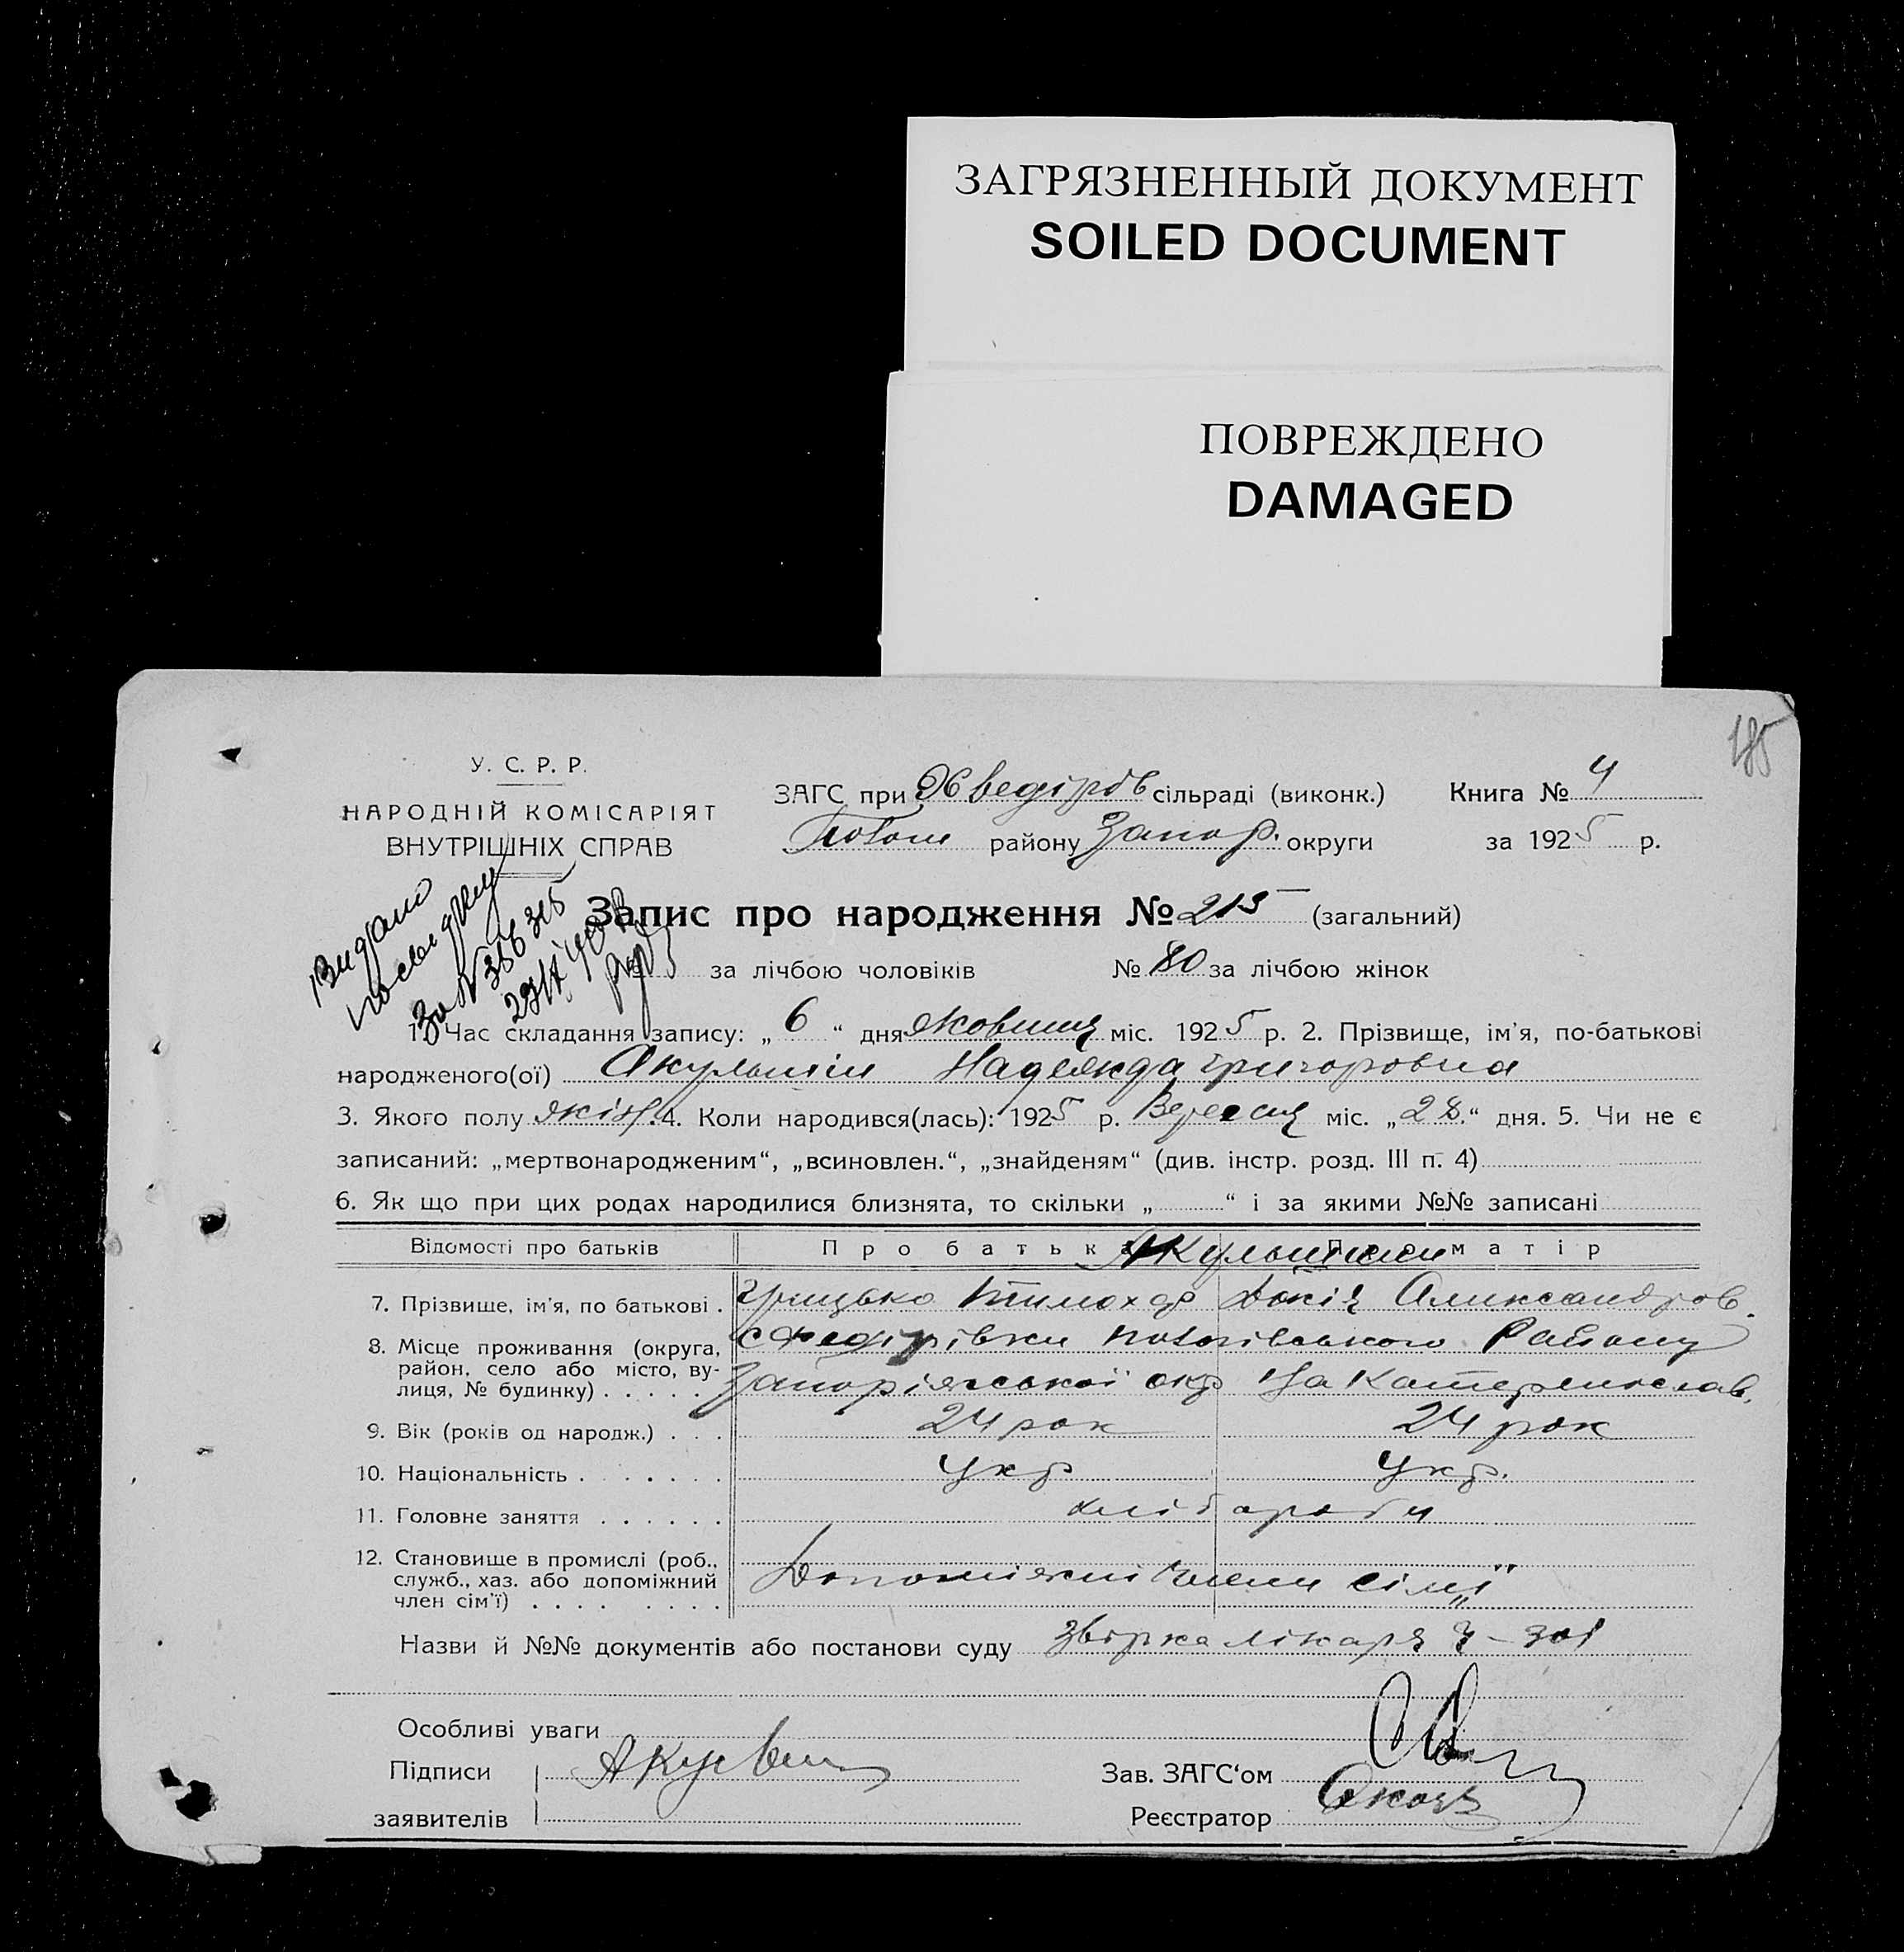 ЗАГРЯЗНЕННЫЙ ДОКУМЕНТ
SOILED DOCUMENT
ПОВРЕЖДЕНО
DAMAGED
185
У. С. Р. Р.
НАРОДНІЙ КОМІСАРІЯТ
ВНУТРІШНІХ СПРАВ
ЗАГС при сільраді (виконк.) Книга № 4
району Запор. округи за 1925 р.
Видано
посвідку
За №
Запис про народження № 215 (загальний)
№ за лічбою чоловіків № 80 за лічбою жінок
1. Час складання запису: „ 6 “ дня жовтня міс. 1925 р. 2. Прізвище, ім'я, по-батькові
народженого(ої) Акульшин Надежда Григоровна
3. Якого полу жіноч. 4. Коли народився(лась): 1925 р. Вересня міс. „28.“ дня. 5. Чи не є
записаний: „мертвонародженим“, „всиновлен.“, „знайденям“ (див. інстр. розд. III п. 4)
6. Як що при цих родах народилися близнята, то скільки „ “ і за якими №№ записані
Відомості про батьків Про батька Про матір
Акульшини
7. Прізвише, ім'я, по батькові . Грицько Тимох Докія Александров.
8. Місце проживання (округа, район, село або місто, вулиця, № будинку) . . . . .
с Федірівки району
Запоріжської окр на Катеринослав.
9. Вік (років од народж.) . . . 24 рок 24 рок
10. Національність . . . . . . . Укр Укр.
11. Головне заняття . . . . . . хліборови
12. Становище в промислі (роб., служб., хаз. або допоміжний член сім'ї) . . . . . . . .
Допоміжні члени сім'ї
Назви й №№ документів або постанови суду лікаря
Особливі уваги
Підписи
заявителів
Зав. ЗАГС‘ом
Реєстратор